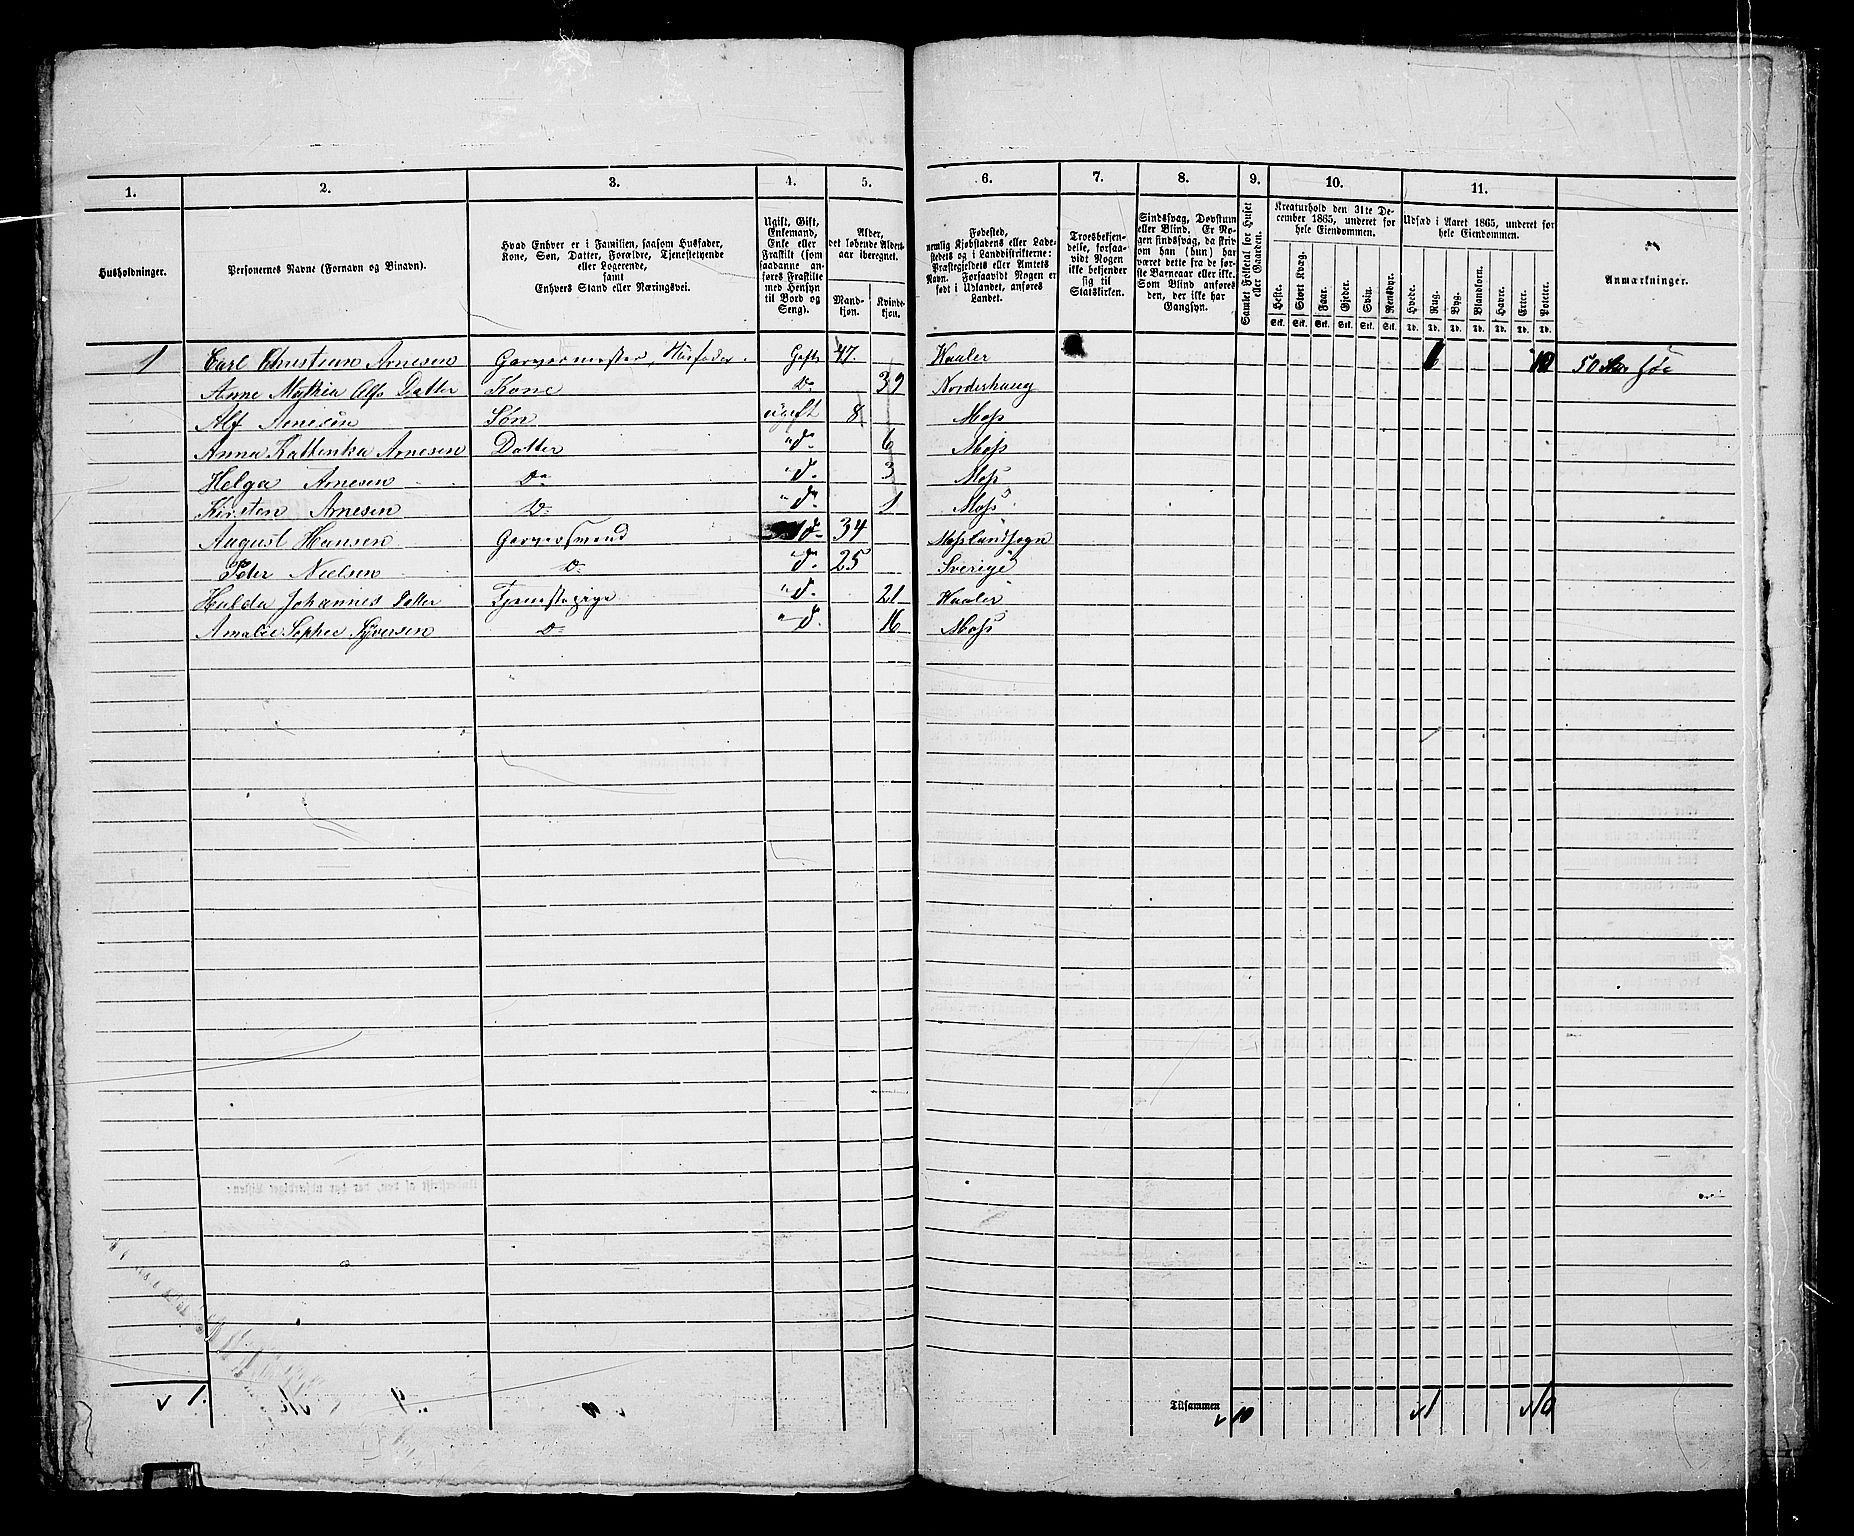 1. 2. 3. 4. 5. 6. 7. 8. 9. 10. 11.
Husholdninger.
Personernes Navne (Fornavn og Binavn).
Hvad Enhver er i Familien, saasom Husfader,
Kone, Søn, Datter, Forældre, Tjenestetyende
eller Logerende,
samt
Enhvers Stand eller Næringsvei.
Ugift, Gift,
Enkemand,
Enke eller
Fraskilt (som
saadanne an-
føres Fraskilte
med Hensyn
til Bord og
Seng).
Alder,
det løbende Alders-
aar iberegnet.
Mand-
kjøn.
Kvinde-
kjøn.
Fødested,
nemlig Kjøbstadens eller Lade-
stedets og i Landdistrikterne:
Præstegjeldets eller Amtets
Navn. Forsaavidt Nogen er
født i Udlandet, anføres
Landet.
Troesbekjen-
delse, forsaa-
vidt Nogen
ikke bekjender
sig til
Statskirken.
Sindssvag, Døvstum
eller Blind. Er No-
gen sindssvag, da skriv
om han (hun) har
været dette fra de før-
ste Barneaar eller ikke.
Som Blind anføres
den, der ikke har
Gangsyn.
Samlet Folketal for Huset
eller Gaarden.
Kreaturhold den 31te De-
cember 1865, underet for
hele Eiendommen.
Heste. Stort Kvæg. Faar. Gjeder. Svin. Rensdyr.
Stk. Stk. Stk. Stk. Stk. Stk.
Udsæd i Aaret 1865, underet for
hele Eiendommen.
Hvede. Rug. Byg. Blandkorn. Havre. Erter. Poteter.
Td. Td. Td. Td. Td. Td. Td.
Anmærkninger.
1 Carl Christian Arnesen Garvermester, Husfader Gift 47. Haaler 50 føe
Anne Mathea Alfs Datter Kone Do 39 Norderhaug
Alf Arnesen Søn ugift 8 Moss
Anna Kathinka Arnesen Datter "d" 6 Moss
Helga Arnesen Do "d. 3 Moss
Kirsten Arnesen Do "d" 1 Moss
August Hansen Garversvend d 34 Mosslandsogn
Peter Nielsen Do "d. 25 Sverige
Hulda Johannes Datter Tjenestepige "d. 21 Haaler
Amalie Sophie Syversen Do "d. 16 Moss
v 1.
Tilsammen v 10 v1 v10